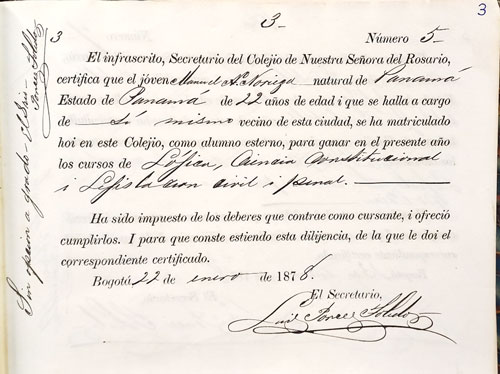 3
3
3
Número 5
El infrascrito, Secretario del Colejio de Nuestra Señora del Rosario,
certifica que el jóven Manuel A. Noriega natural de Panamá
Estado de Panamá de 22 años de edad i que se halla a cargo
de Sí mismo vecino de esta ciudad, se ha matriculado
hoi en este Colejio, como alumno esterno, para ganar en el presente año
los cursos de Lójica, Ciencia Constitucional
i Lejislacion civil i penal.
Ha sido impuesto de los deberes que contrae como cursante, i ofreció
cumplirlos. I para que conste estiendo esta dilijencia, de la que le doi el
correspondiente certificado.
Bogotá 22 de enero de 1878.
El Secretario,
Luis Ponce Toledo
Sin opcion a grado.